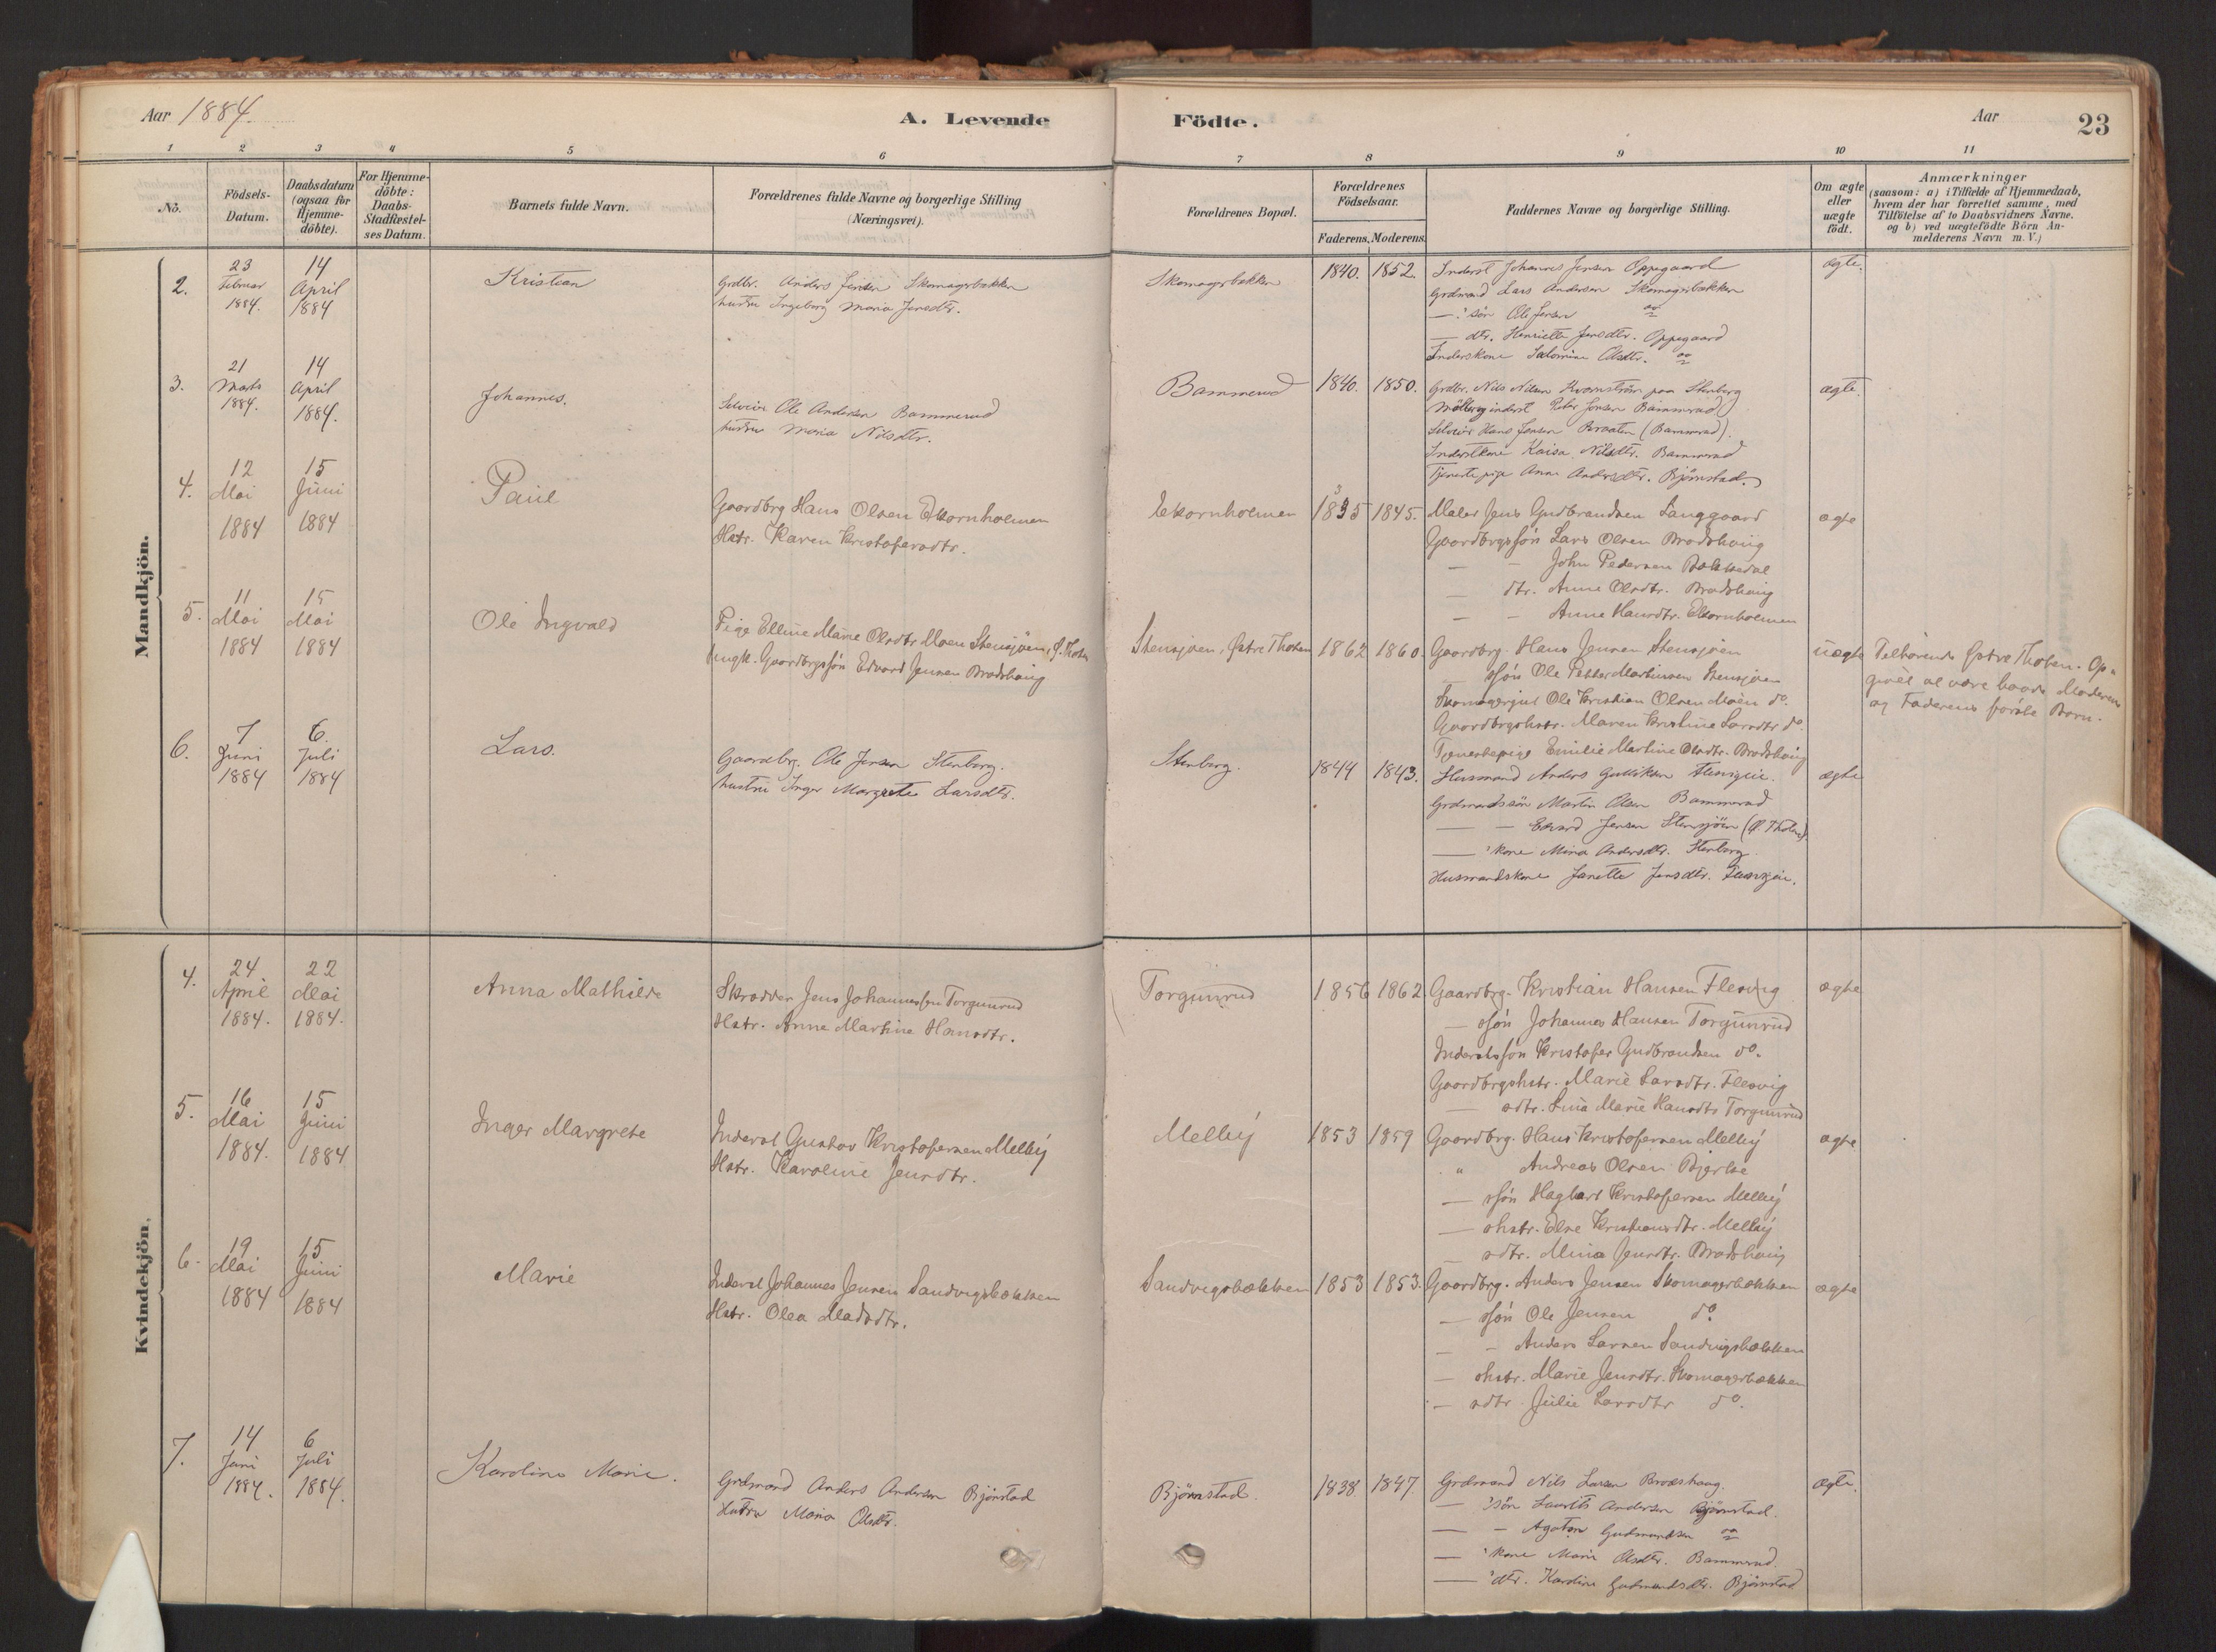 Aar 1884.
A. Levende
Födte.
Aar
23
1 2 3 4 5 6 7 8 9 10 11
No.
Födsels-Datum.
Daabsdatum (ogsaa for Hjemme-döbte).
For Hjemme-döbte: Daabs-Stadfæstel-ses Datum.
Barnets fulde Navn.
Forældrenes fulde Navne og borgerlige Stilling (Næringsvei).
Forældrenes Bopæl.
Forældrenes Födselsaar.
Faderens. Moderens.
Faddernes Navne og borgerlige Stilling.
Om ægte eller uægte födt.
Anmærkninger
(saasom: a) i Tilfælde af Hjemmedaab,
hvem der har forrettet samme, med
Tilföielse af to Daabsvidners Navne.
og b) ved uægtefödte Börn An-
melderens Navn m. V.)
Mandkjön.
2.
23 Februar 1884.
14 April 1884
Kristian
Grdbr. Anders Jensen Skomagerbakken
hustru Ingeborg Maria Jensdtr.
Skomagerbakken
1840. 1852.
Inderst Johannes Jensen Oppegaard
Grdmand Lars Andersen Skomagerbakken
— sön Ole Jensen do
— dtr. Henriette Jensdtr. Oppegaard
Inderskone Olsdtr. do
ægte.
3.
21 Marts 1884.
14 April 1884.
Johannes.
Selveier Ole Andersen Bammerud
hustru Maria Nilsdtr.
Bammerud
1840. 1850.
Grdbr. Nils Nilsen Kvernström paa Stenberg
Inderst Peter Jensen Bammerud
Selveier Hans Jensen Braaten (Bammerud).
Inderstkone Kaisa Nilsdtr. Bammerud
Tjenestepige Anne Andersdtr. Bjørnstad.
ægte.
4.
12 Mai 1884
15 Juni 1884
Paul
Gaardbrg Hans Olsen Ekornholmen
Hstr. Karen Kristofersdtr.
Ekornholmen
1835 1845.
Maler Jens Gudbrandsen Langgaard
Gaardbrgssön Lars Olsen Brodshaug
— — John Pedersen Bakkedal
— dtr. Anne Olsdtr. Brodshaug
— — Anne Hansdtr. Ekornholmen
ægte
5.
11 Mai 1884
15 Mai 1884
Ole Ingvald
Pige Elline Marie Olsdtr Moen Stensjøen, Ø. Thoten
Ungk. Gaardbrgssön Edvard Jensen Brodshaug
Stensjøen, Østre Thoten
1862 1860.
Gaardbrg. Hans Jensen Stensjøen
— ssön Ole Petter Martinsen Stensjøen
Skomagergut Ole Kristian Olsen Moen do.
Gaardbrgshstr. Maren Kristine Larsdtr do.
Tjenestepige Emilie Martine Olsdtr. Brodshaug
uægte
Tilhörende Østre Thoten. Op-
givet at være baade Moderens
og Faderens förste Barn.
6.
7 Juni 1884
6. Juli 1884
Lars.
Gaardbr. Ole Jensen Stenberg.
hustru Inger Margrete Larsdtr.
Stenberg.
1844 1843.
Husmand Anders Gulliksen
Grdmandssön Martin Olsen Bammerud
— — Edvard Jensen Stensjöen (Ø Thoten).
— 'kone Mina Andersdtr. Stenberg
Husmandskone Janette Jensdtr.
ægte
Kvindekjön.
4.
24 April 1884.
22 Mai 1884.
Anna Mathilde
Skrædder Jens Johannessen Torgunrud
Hstr. Anne Martine Hansdtr.
Torgunrud
1856 1862
Gaardbrg. Kristian Hansen Flesvig
— ssön Johannes Hansen Torgunrud
Inderstssön Kristofer Gudbrandsen do.
Gaardbrgshstr. Marie Larsdtr. Flesvig
— sdtr. Lina Marie Hansdtr Torgunrud
ægte
5.
16 Mai 1884.
15 Juni 1884
Inger Margrete
Inderst Gustav Kristofersen Melby
Hstr. Karoline Jensdtr.
Melby
1853 1859
Gaardbrg. Hans Kristofersen Melby
" Andreas Olsen Bjerke
— ssön Hagbart Kristofersen Melby
— shstr. Else Kristiansdtr. Melby
— sdtr. Mina Jensdtr. Brodshaug
ægte
6.
19 Mai 1884
15 Juni 1884
Marie
Inderst Johannes Jensen Sandvigsbakken
Hstr. Olea Madsdtr.
Sandvigsbakken
1853 1853.
Gaardbrg. Anders Jensen Skomagerbakken
— ssön Ole Jensen do.
— — Anders Larsen Sandvigsbakken
— shstr. Marie Jensdtr. Skomagerbakken
— sdtr Julie Larsdtr do.
ægte
7.
14 Juni 1884.
6 Juli 1884.
Karoline Marie.
Grdmand Anders Andersen Bjørnstad
Hustru Maria Olsdtr.
Bjørnstad.
1838. 1847
Grdmand Nils Larsen Brodshaug.
— 'sön Laurits Andersen Bjørnstad.
— — Agaton Gudmundsen do
— 'kone Marie Olsdtr. Bammerud.
— 'dtr. Karoline Gudmundsdtr. Bjørnstad
ægte.